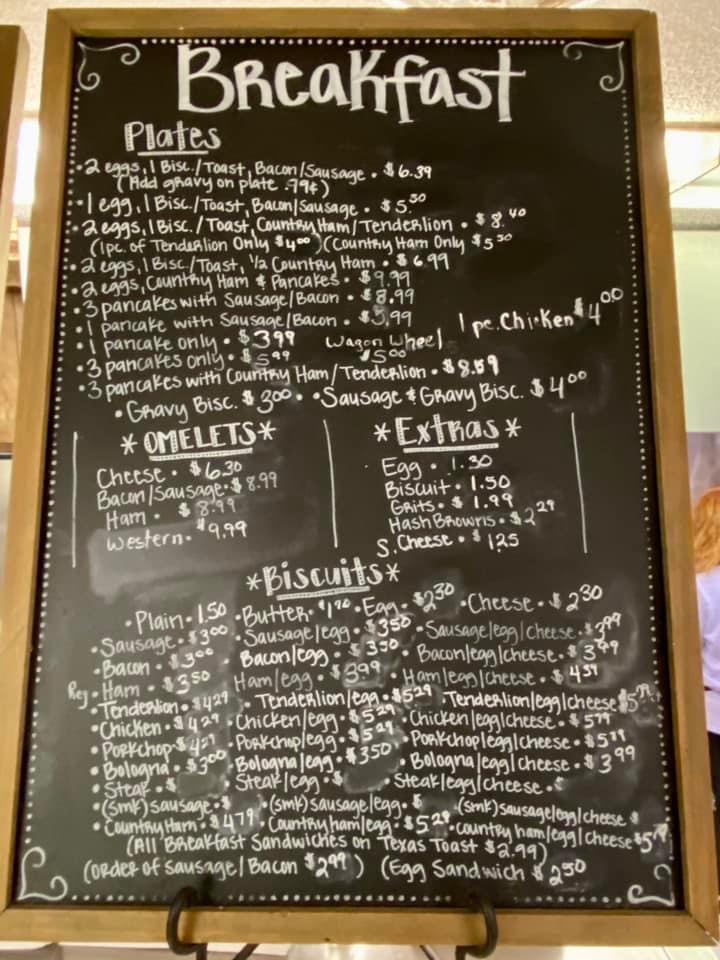 Breakfast
Plates
• 2 eggs, 1 Bisc./Toast, Bacon/Sausage • $6.39
(Add gravy on plate .99¢)
• 1 egg, 1 Bisc./Toast, Bacon/Sausage • $5.50
• 2 eggs, 1 Bisc./Toast, Country Ham/Tenderlion • $8.40
(1pc. of Tenderlion Only $4.00) (Country Ham Only $5.50
• 2 eggs, 1 Bisc./Toast, 1/2 Country Ham • $6.99
• 2 eggs, Country Ham & Pancakes • $9.99
• 3 pancakes with Sausage/Bacon • $8.99
• 1 pancake with Sausage/Bacon • $5.99
1 pc. Chicken $4.00
• 1 pancake only • $3.99
Wagon Wheel
$5.00
• 3 pancakes only • $5.99
• 3 pancakes with Country Ham/Tenderlion • $8.59
• Gravy Bisc. $3.00 • • Sausage & Gravy Bisc. $4.00
*OMELETS*
Cheese • $6.30
Bacon/Sausage • $8.99
Ham • $8.99
Western • $9.99
*Extras*
Egg • 1.30
Biscuit • 1.50
Grits • $1.99
Hash Browns • $2.29
S. Cheese • $1.25
*Biscuits*
• Plain • 1.50 • Butter • $1.70 • Egg • $2.30 • Cheese • $2.30
• Sausage • $3.00 • Sausage/egg • $3.50 • Sausage/egg/cheese • $3.99
• Bacon • $3.00 Bacon/egg • $3.50 • Bacon/egg/cheese • $3.99
Reg • Ham • $3.50 Ham/egg • $3.99 • Ham/egg/cheese • $4.59
• Tenderlion • $4.29 • Tenderlion/egg • $5.29 Tenderlion/egg/cheese $5.79
• Chicken • $4.29 • Chicken/egg • $5.29 Chicken/egg/cheese • $5.79
• Porkchop • $4.29 • Porkchop/egg • $5.29 Porkchop/egg/cheese • $5.79
• Bologna • $3.00 Bologna/egg • $3.50 • Bologna/egg/cheese • $3.99
• Steak • $ Steak/egg • $ Steak/egg/cheese •
• (smk) sausage • $ • (smk) sausage/egg • $ (smk) sausage/egg/cheese $
• Country Ham • $4.79 • Country ham/egg • $5.29 • country ham/egg/cheese $5.79
(All Breakfast Sandwiches on Texas Toast $2.99)
(Order of Sausage/Bacon $2.99) (Egg Sandwich $2.50